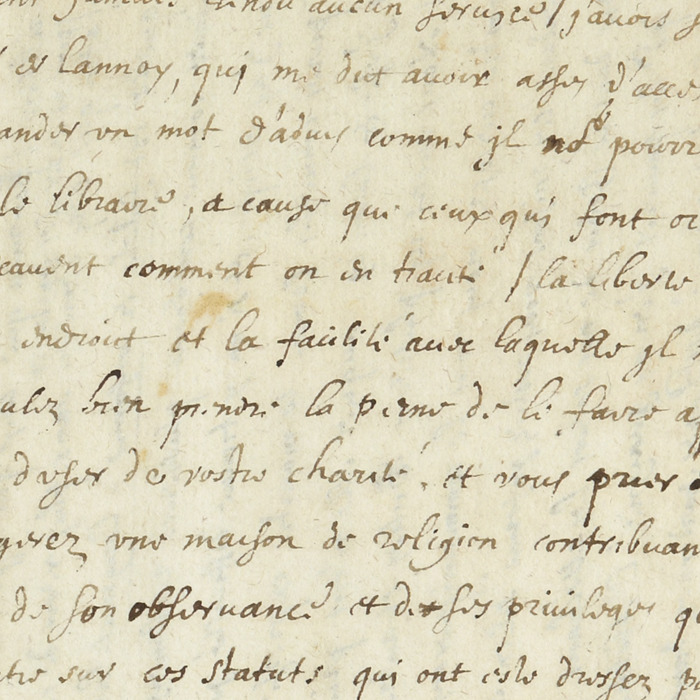 jamais rendu aucun service / j'avois
de lannoy, qui me dit avoir asses d'acce
ander un mot d'aduis comme jl pourr
le libraire, a cause que ceux qui font or
cauent comment on en traite / la liberte
endroict et la facilité auec laquelle jl
ulez bien prendre la peine de le faire a
d'user de vostre charité, et vous prier
gerez vne maison de religion contribuan
de son obseruance et de ses priuileges q
tre sur ces statuts qui ont este dressez p